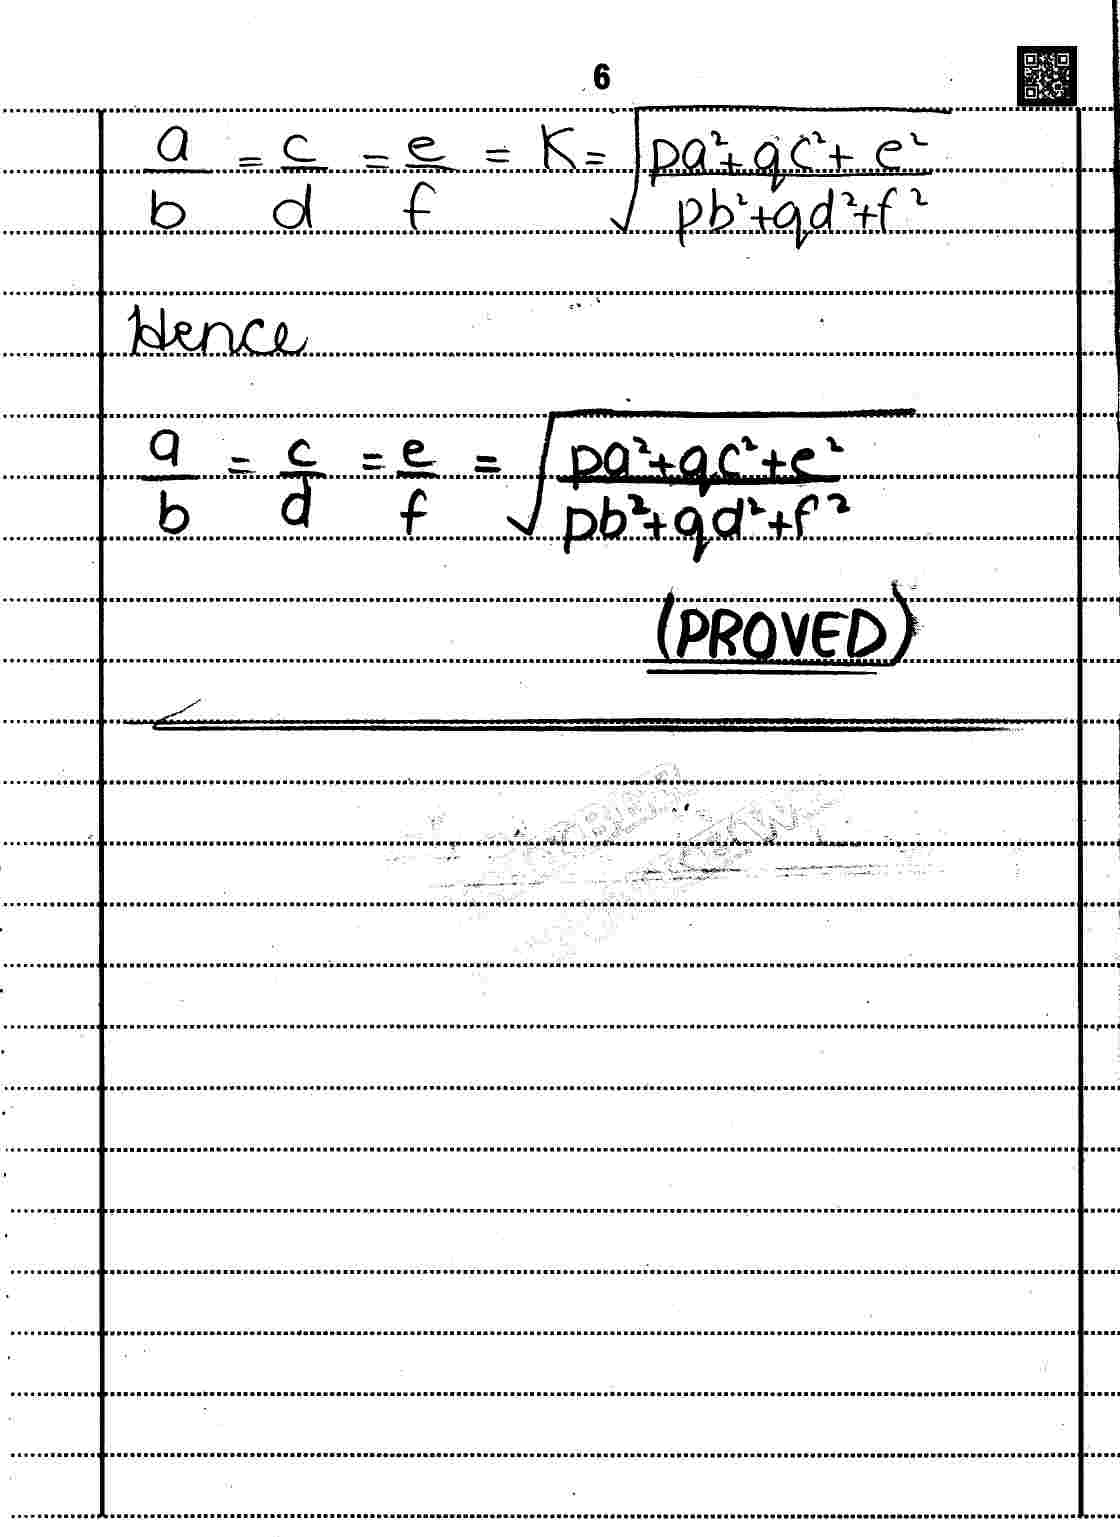 6
a/b = c/d = e/f = K = √(pa²+qc²+e² / pb²+qd²+f²)
Hence
a/b = c/d = e/f = √(pa²+qc²+e² / pb²+qd²+f²)
(PROVED)